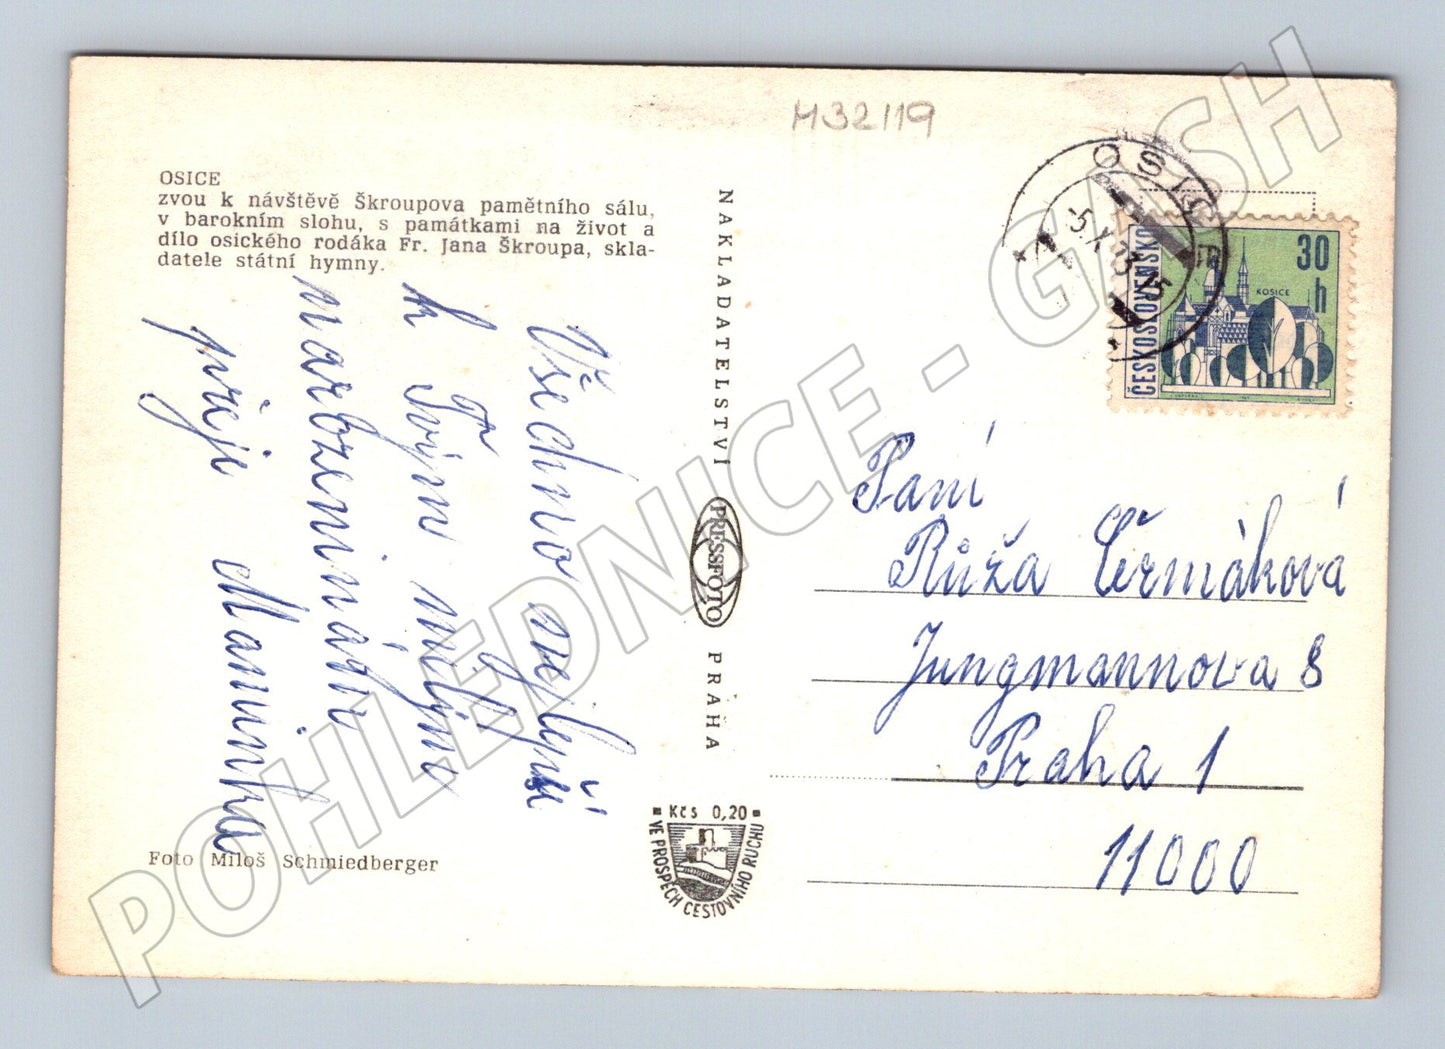 M32119
OSICE
zvou k návštěvě Škroupova pamětního sálu,
v barokním slohu, s památkami na život a
dílo osického rodáka Fr. Jana Škroupa, skla-
datele státní hymny.
Všechno nejlepší
k Tvým milým
narozeninám
přeje Maminka
Foto Miloš Schmiedberger
NAKLADATELSTVÍ
PRESSFOTO
PRAHA
Kčs 0,20
VE PROSPĚCH CESTOVNÍHO RUCHU
OSICE
-5.X.73-15
ČESKOSLOVENSKO
30 h
KOŠICE
Paní
Růža Čermáková
Jungmannova 8
Praha 1
11000
POHLEDNICE - GASH